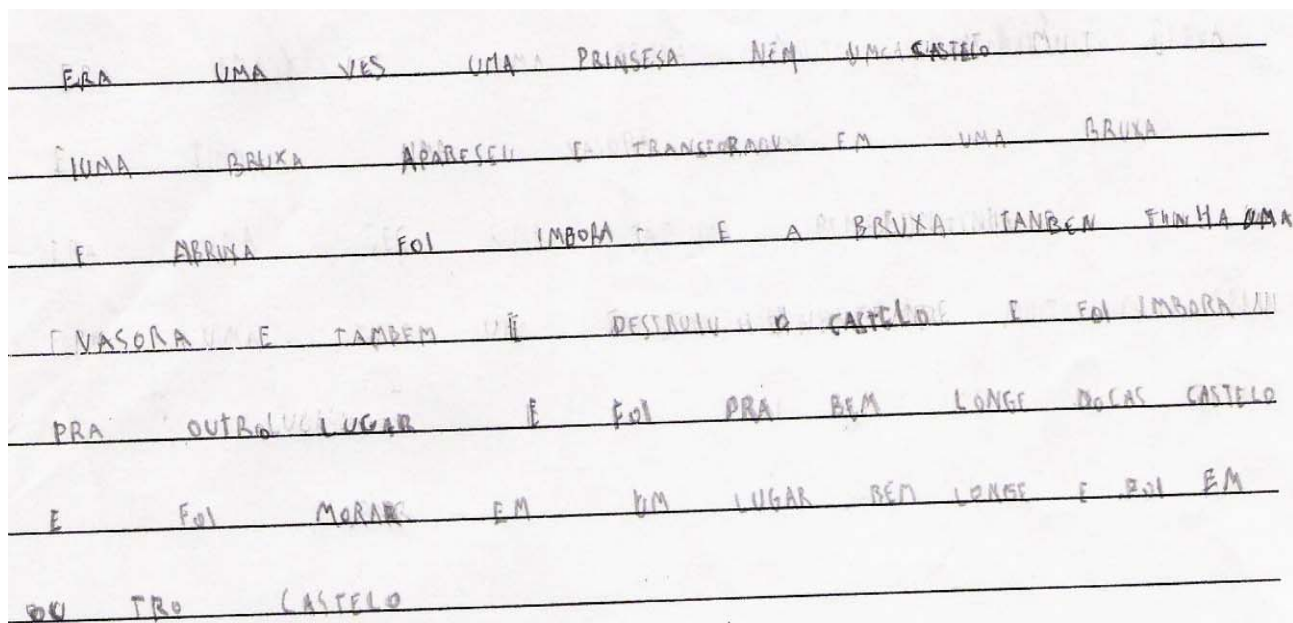 ERA UMA VES UMA PRINSESA NEM UM CASTELO
IUMA BRUXA APARESEU E TRANSFORAOU EM UMA BRUXA
E ABRUXA FOI IMBORA E A BRUXA TANBEN TINHA UMA
VASORA E TAMBEM E DESTRUIU O CASTELO E FOI IMBORA
PRA OUTRO LUGAR E FOI PRA BEM LONGE DOCAS CASTELO
E FOI MORAR EM UM LUGAR BEM LONGE E FOI EM
OU TRO CASTELO